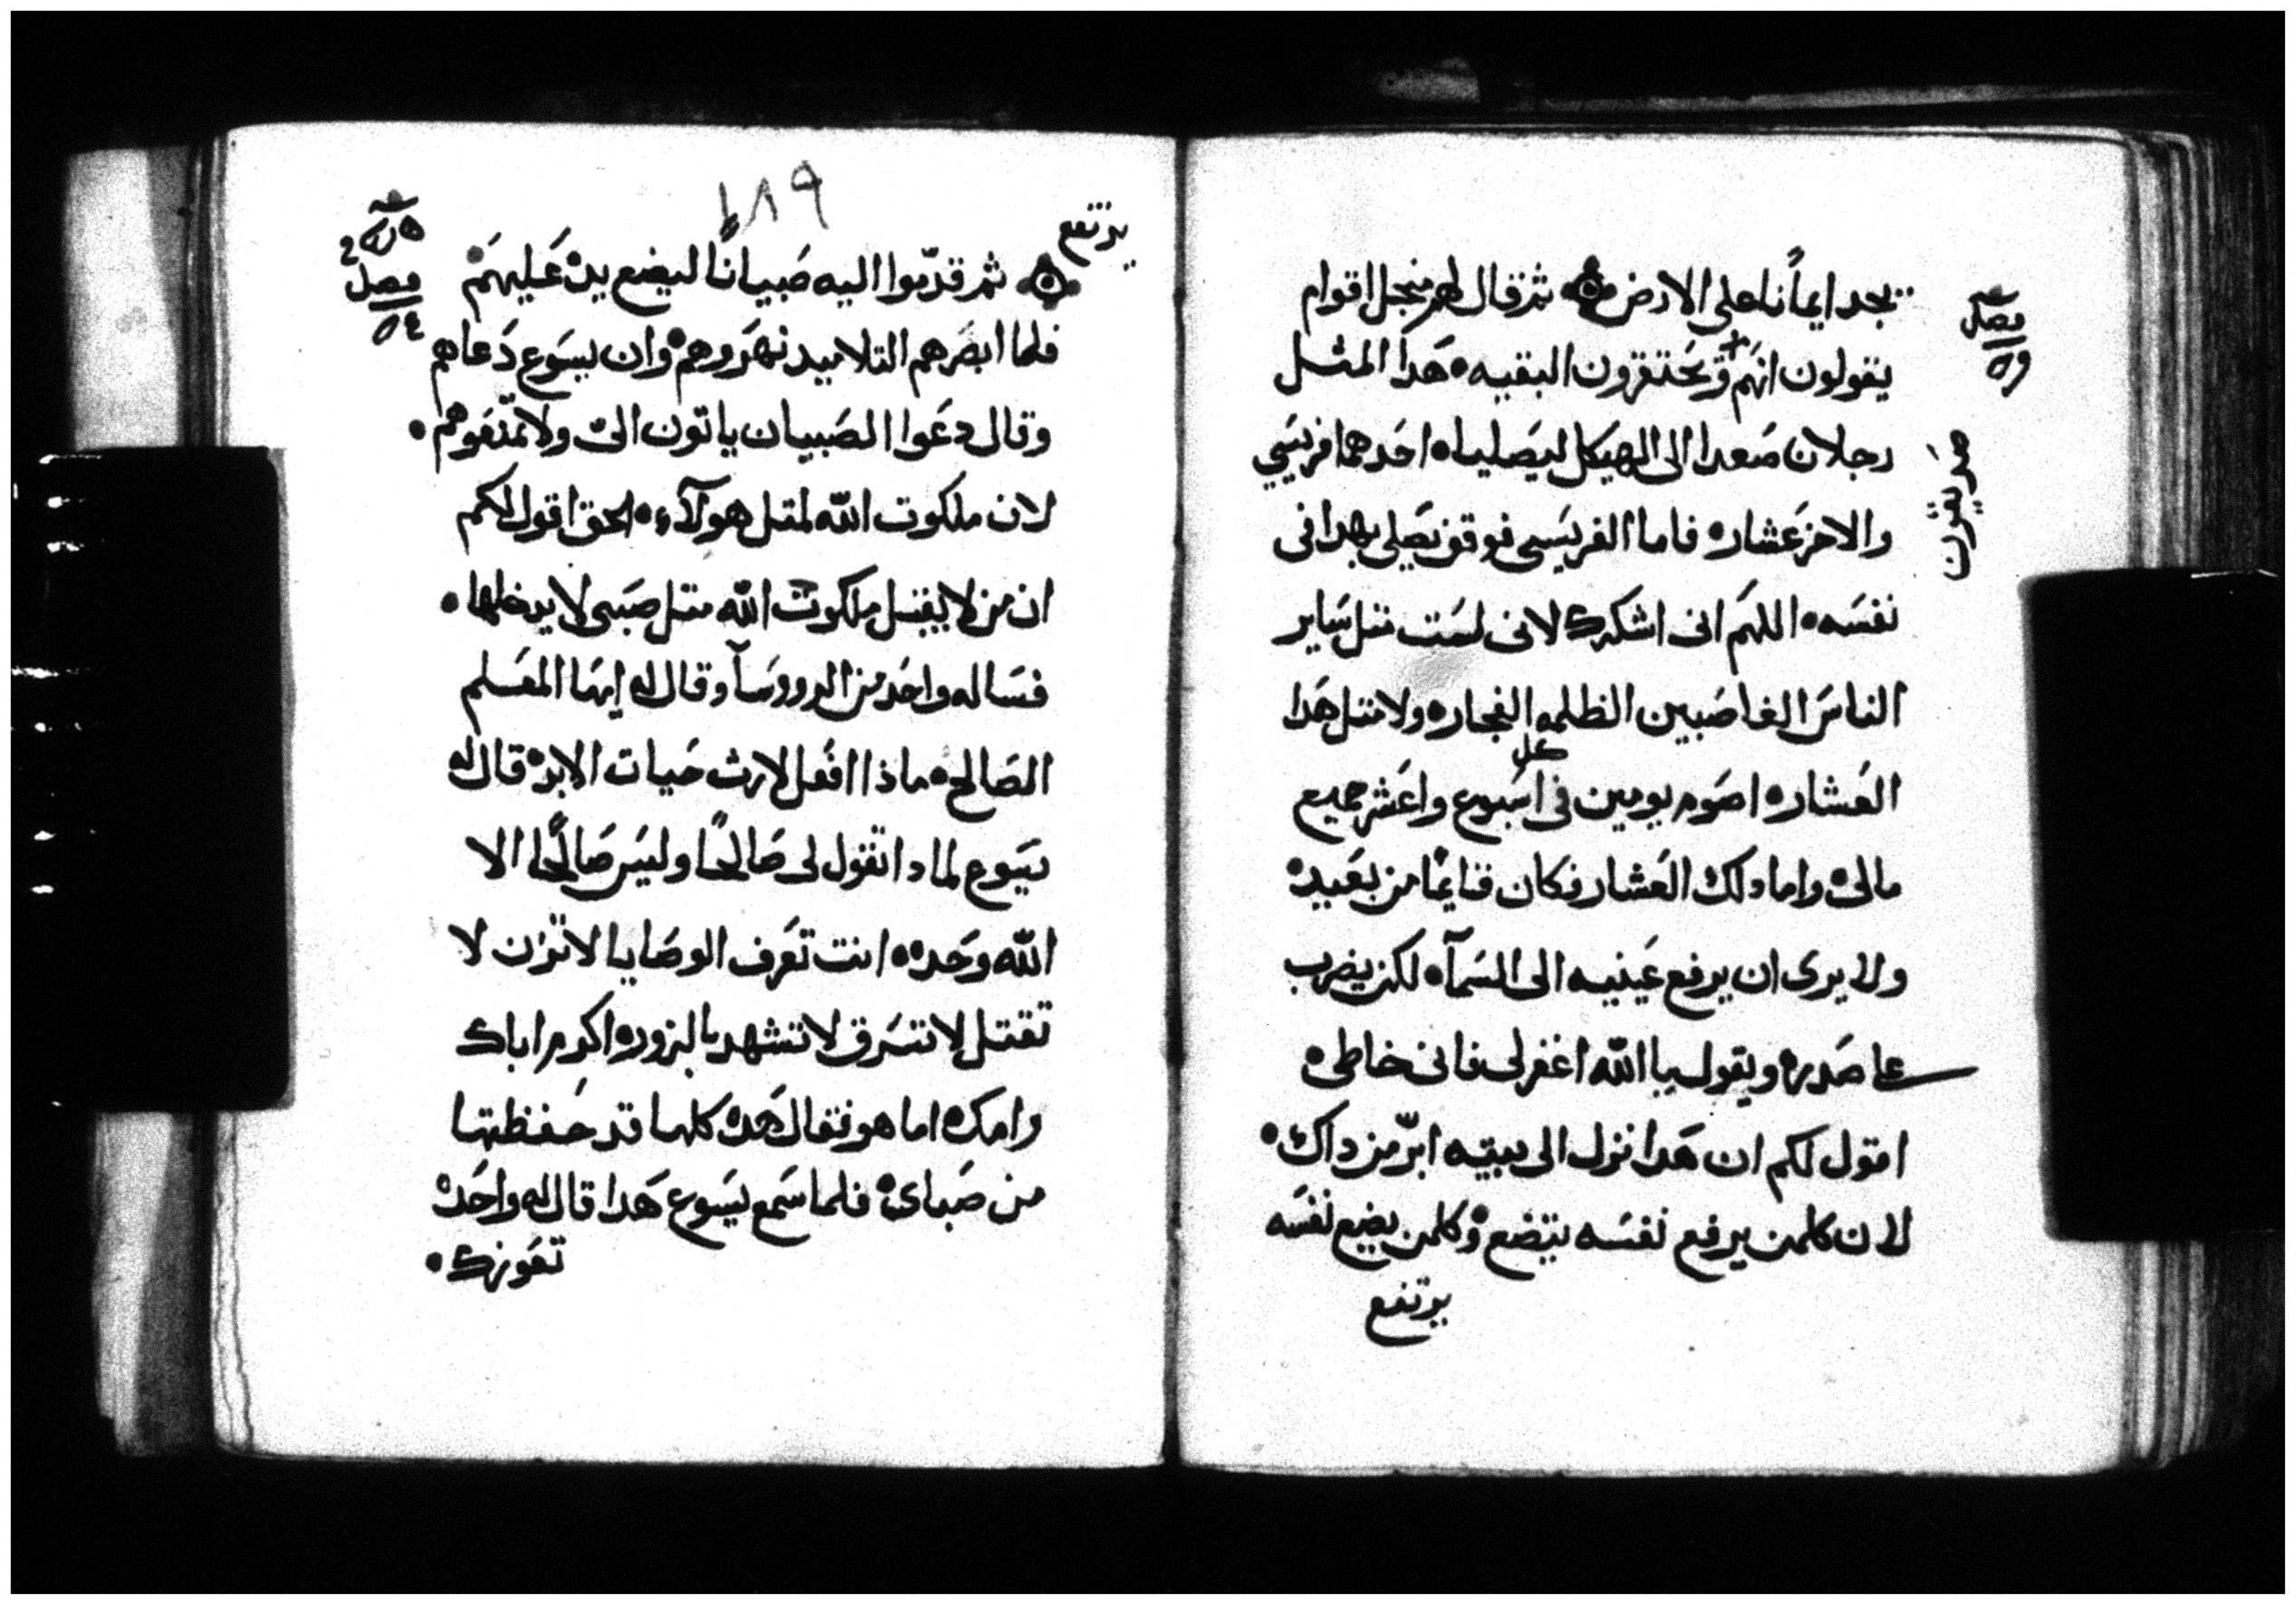 فصل
يجد ايمانًا على الارض ۞ ثم قال لهم منجل اقوام
يقولون انهم + ويحتقرون البقيه ٠ هَدا المثل
صديقون
رجلان صَعدا الى الهيكل ليصَليا ٠ احَدهما فريسَي
والاخر عَشار ٠ فاما الفريسَي فوقف يصَلي بهدا في
نفسَه ٠ اللهَم انى اشكرك لانى لسَت متل سَاير
الناسَ الغاصَبين الظلمه الفجار ٠ ولا متل هَدا
العَشار ٠ اصَوم يومين في كل اسَبوع واعَشر جميع
مالى ٠ واما دلك العَشار فكان قايمًا من بعَيد ٠
ولا يرى ان يرفع عَينيه الى السَمآ ٠ لكن يضرب
على صَدره ويقول يا الله اغفر لى فانى خاطى ٠
اقول لكم ان هَدا نزل الى بيته ابرّ من داك ٠
لان كلمن يرفع نفسَه يتضع ٠ وكلمن يضع نفسَه
يرتفع
١٨٩
يرتفع
فصل
٥٤
۞ ثم قدّموا اليه صَبيانًا ليضع يده عَليهَم ٠
فلما ابصَرهم التلاميد نهَروهم ٠ وان يسَوع دَعاهم
وقال دعَوا الصَبيان ياتون الىّ ولا تمنعَوهم ٠
لان ملكوت الله لمتل هولآء ٠ الحق اقول لكم
ان من لا يقبل ملكوت الله متل صَبى لا يدخلها ٠
فسَاله واحَد من الرووسَآ وقال له ايهَا المعَلم
الصَالح ٠ ماذا افعَل لارث حَيات الابد ٠ قال له
يسَوع لمادا تقول لى صَالحًا وليسَ صَالحًا الا
الله وحَده ٠ انت تعَرف الوصَايا لا تزن لا
تقتل لا تسَرق لا تشهد بالزور ٠ اكرم اباك
وامك ٠ اما هو فقال هَده كلها قد حَفظتها
من صَباى ٠ فلما سَمع يسَوع هَدا قال له واحَده
تعَوزك ٠